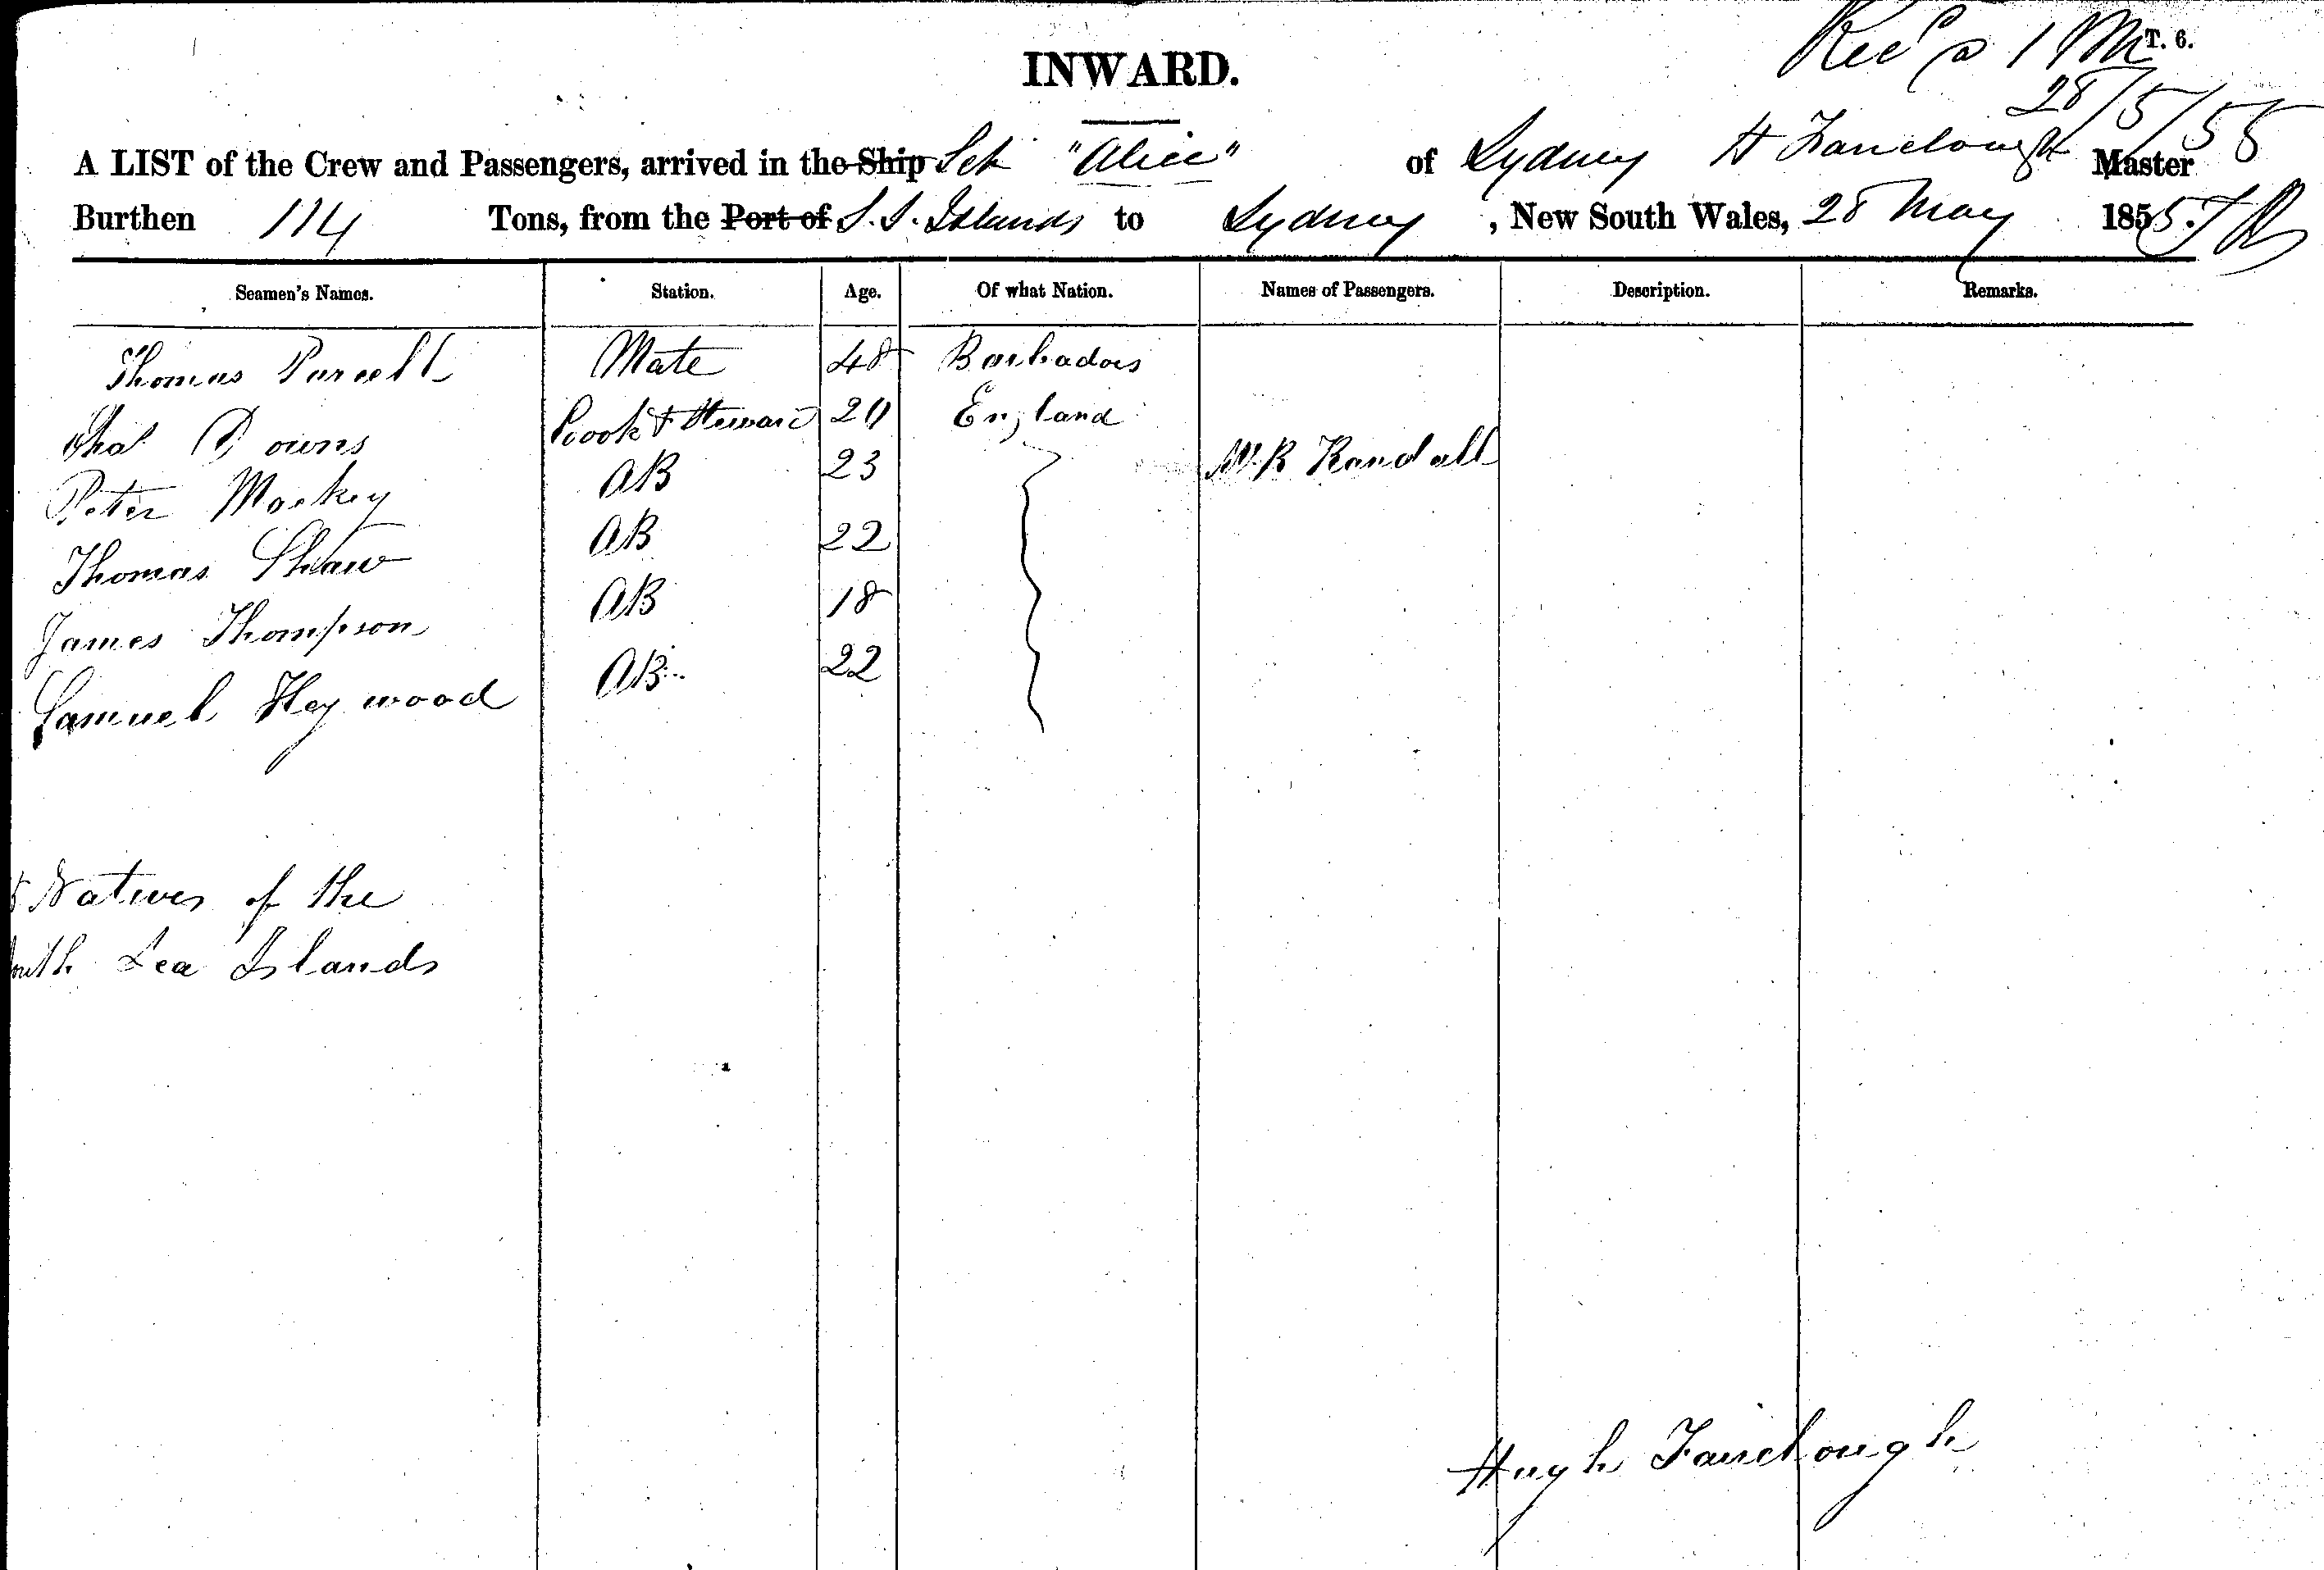 Recd 1 PM T. 6.
INWARD.
28/5/55
A LIST of the Crew and Passengers, arrived in the Ship Sch "Alice" of Sydney H Fairclough Master
Burthen 114 Tons, from the Port of S. S. Islands to Sydney, New South Wales, 28 May 1855.
Seamen's Names. Station. Age. Of what Nation. Names of Passengers. Description. Remarks.
Thomas Purcell Mate 48 Barbadoes
Downs Cook & Steward 20 England
Peter Mackey AB 23 Mr R Randall
Thomas Shaw AB 22
James Thompson AB 18
Samuel Heywood AB 22
Natives of the
South Sea Islands
Hugh Fairclough